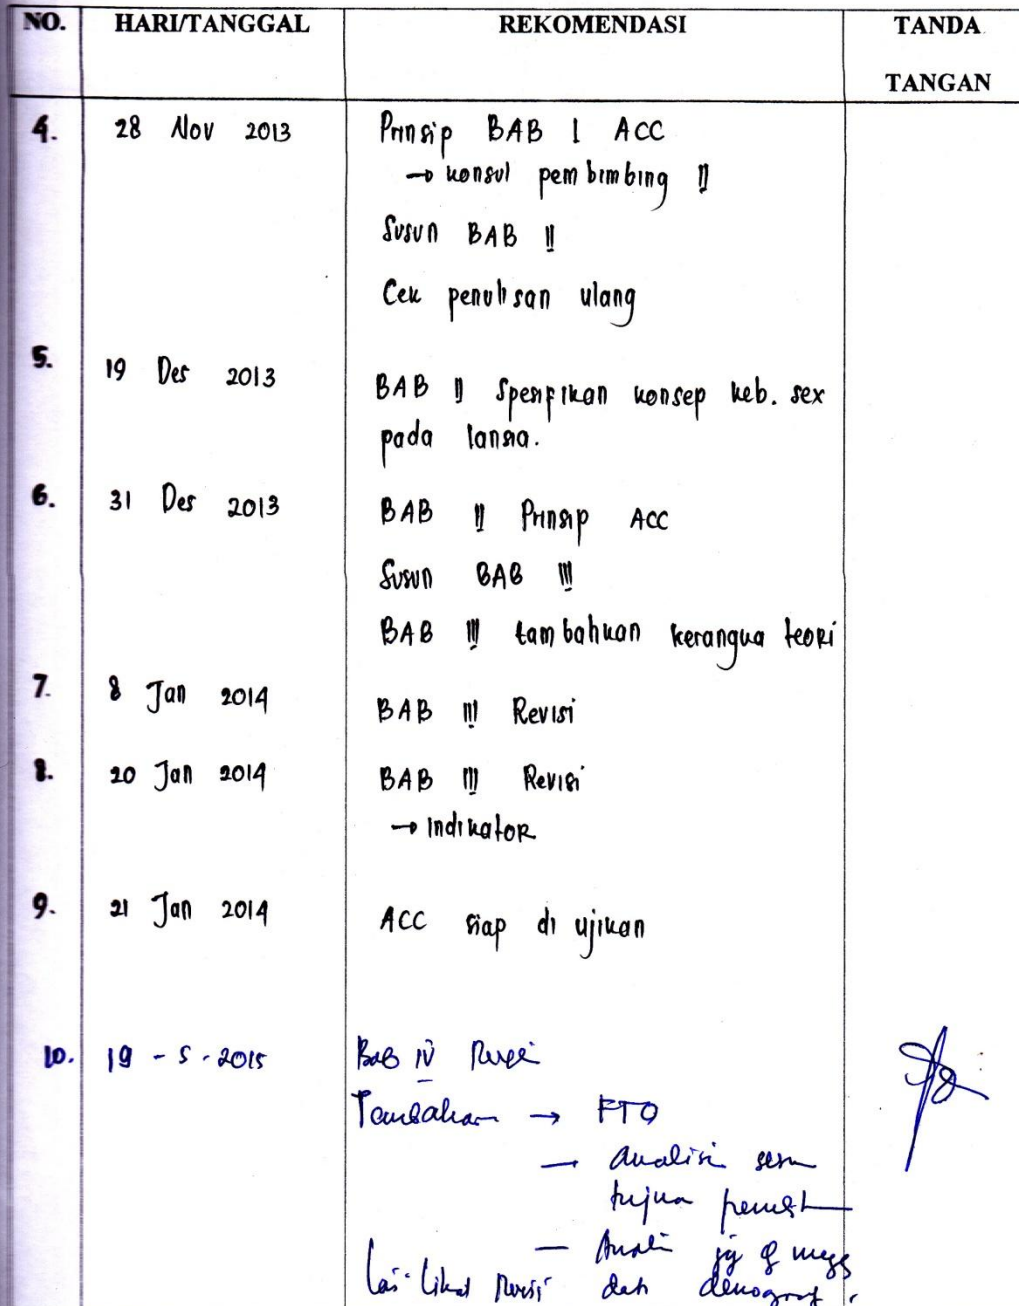 NO. HARI/TANGGAL REKOMENDASI TANDA TANGAN
4. 28 Nov 2013 Prinsip BAB I ACC
→ konsul pembimbing II
Susun BAB II
Cek penulisan ulang
5. 19 Des 2013 BAB II Spesifikan konsep keb. sex
pada lansia.
6. 31 Des 2013 BAB II Prinsip ACC
Susun BAB III
BAB III tambahkan kerangka teori
7. 8 Jan 2014 BAB III Revisi
8. 20 Jan 2014 BAB III Revisi
→ indikator
9. 21 Jan 2014 ACC siap di ujikan
10. 19 - 5 - 2015 Bab IV Revisi
Tambahan → FTO
— analisi
tujua
—
Revisi